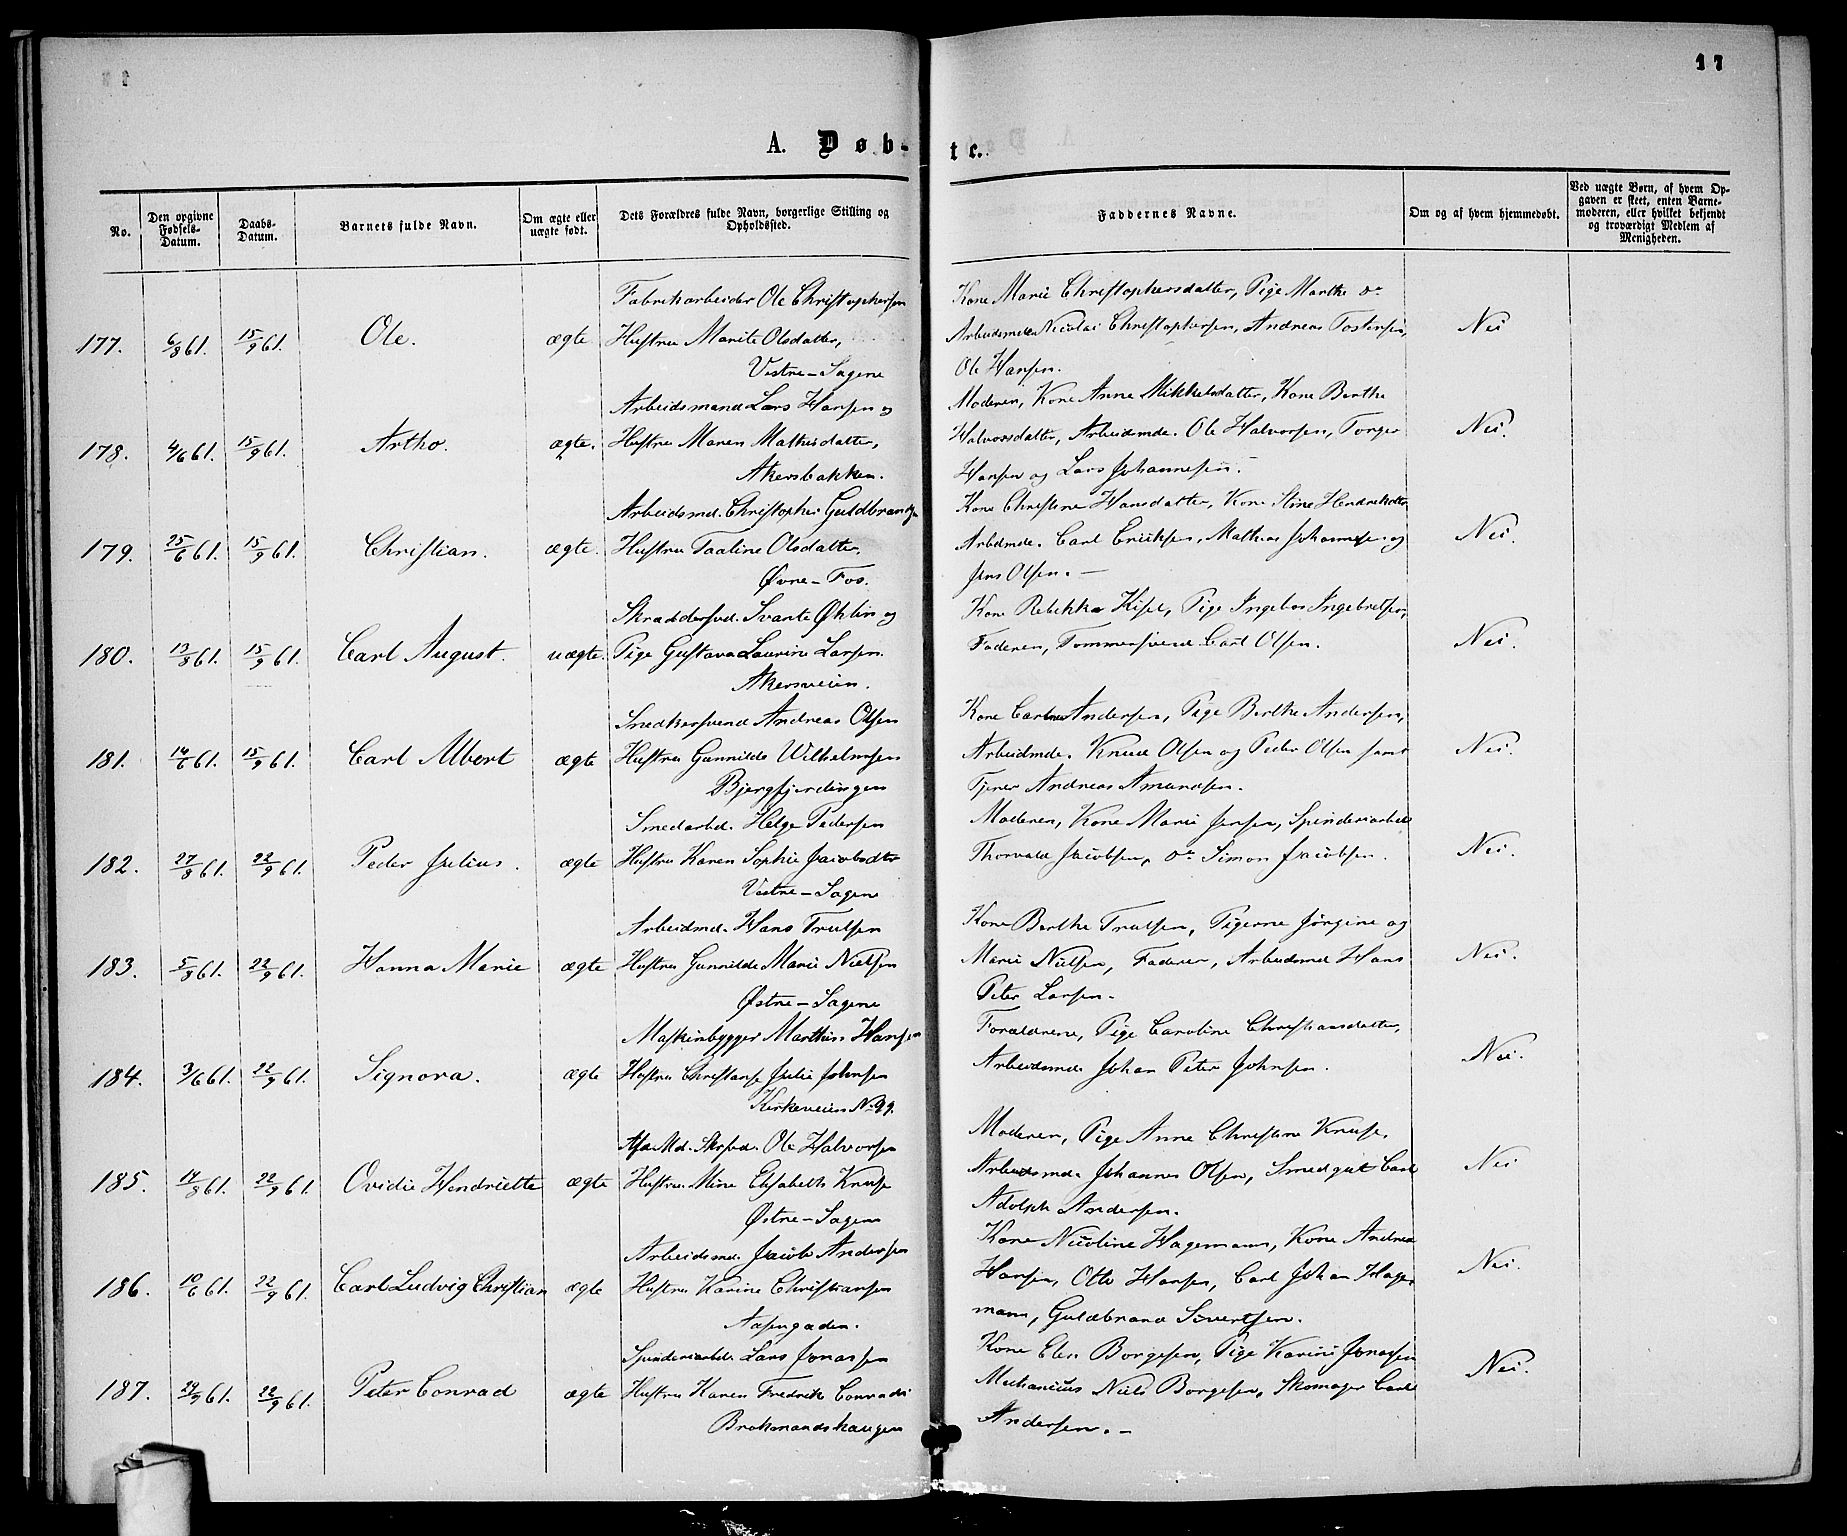 17
A. Døb-
te.
No.
Den opgivne Fødsels-Datum.
Daabs-Datum.
Barnets fulde Navn.
Om ægte eller uægte født.
Dets Forældres fulde Navn, borgerlige Stilling og Opholdssted.
Faddernes Navne.
Om og af hvem hjemmedøbt.
Ved uægte Børn, af hvem Opgaven er skeet, enten Barnemoderen, eller hvilket bekjendt og troværdigt Medlem af Menigheden.
Fabrikarbeider Ole Christophersen
177. 6/8 61. 15/9 61. Ole. ægte. Hustru Marite Olsdatter,
Vestre-Sagene
Kone Marie Christophersdatter, Pige Marthe do
Arbeidsmde Nicolai Christophersen, Andreas Tostensen, Nei
Ole Hansen.
Arbeidsmand Lars Hansen og
178. 4/6 61. 15/9 61. Artho. ægte. Hustru Maren Mathisdatter,
Akersbakken.
Moderen, Kone Anne Mikkelsdatter, Kone Berthe
Halvorsdatter, Arbeidmde. Ole Halvorsen, Torger Nei.
Hansen og Lars Johannesen.
Arbeidsmd. Christopher Guldbrandsen
179. 25/6 61. 15/9 61. Christian. ægte. Hustru Taaline Olsdatter,
Øvre-Fos.
Kone Christine Hansdatter, Kone Stine Hendriksdtter
Arbdmde. Carl Eriksen, Mathias Johannesen og Nei.
Jens Olsen. —
Skræddersvd. Svante Øhlin og
180. 13/8 61. 15/9 61. Carl August. uægte. Pige Gustava Laurine Larsen.
Akersveien.
Kone Rebekka Kisel, Pige Ingebor Ingebretsen,
Faderen, Tømmersvend Carl Olsen. Nei.
Snedkersvend Andreas Olsen
181. 14/6 61. 15/9 61. Carl Albert ægte Hustru Gunnilde Wilhelmsen
Bjergfjerdingen
Kone Andersen, Pige Berthe Andersen,
Arbeidmde. Knud Olsen og Peder Olsen samt Nei.
Tjener Andreas Amundsen.
Smedarbd. Helge Pedersen
182. 27/8 61. 22/9 61. Peder Julius. ægte Hustru Karen Sophie Jacobsdtr
Vestre-Sagene
Moderen, Kone Marie Jensen, Spinderiarbd
Thorvald Jacobsen, do Simon Jacobsen. Nei.
Arbeidmd. Hans Trulsen
183. 5/8 61. 22/9 61. Hanna Marie ægte Hustru Gunnilde Marie Nielsen
Østre-Sagene
Kone Berthe Trulsen, Pigerne Jørgine og
Marie Nielsen, Faderen, Arbeidsmd Hans Nei.
Peter Larsen.
Maskinbygger Marthin Hansen
184. 3/6 61. 22/9 61. Signora. ægte Hustru Christanse Julie Johnsen
Kirkeveien No 99.
Forældrene, Pige Caroline Christiansdatter,
Arbeidsmd Johan Peter Johnsen. Nei.
Ole Halvorsen
185. 17/8 61. 22/9 61. Ovidie Hendriette ægte Hustru Mine Elisabeth Kruse
Østre-Sagene
Moderen, Pige Anne Christine Kruse,
Arbeidsmd. Johannes Olsen, Smedgut Carl Nei
Adolph Andersen.
Arbeidsmd. Jacob Andersen
186. 10/6 61. 22/9 61. Carl Ludvig Christian ægte Hustru Karine Christiansen
Aasengaden.
Kone Nicoline Hagemann, Kone Andrea
Hansen, Otto Hansen, Carl Johan Hage- Nei.
mann, Guldbrand Sivertsen.
Spinderiarbd. Lars Jonassen
187. 61. 22/9 61. Peter Conrad ægte Hustru Karen Fredrik Conradi
Brokmandshaugen
Kone Elen Borgesen, Pige Karine Jonassen
Mechanicus Niels Borgesen, Skomager Carl Nei.
Andersen. —